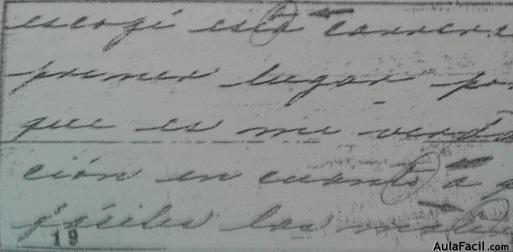 escogí esta carrer
primer lugar po
que es mi verda
ción en cuanto a
fáciles las
19
AulaFacil.com